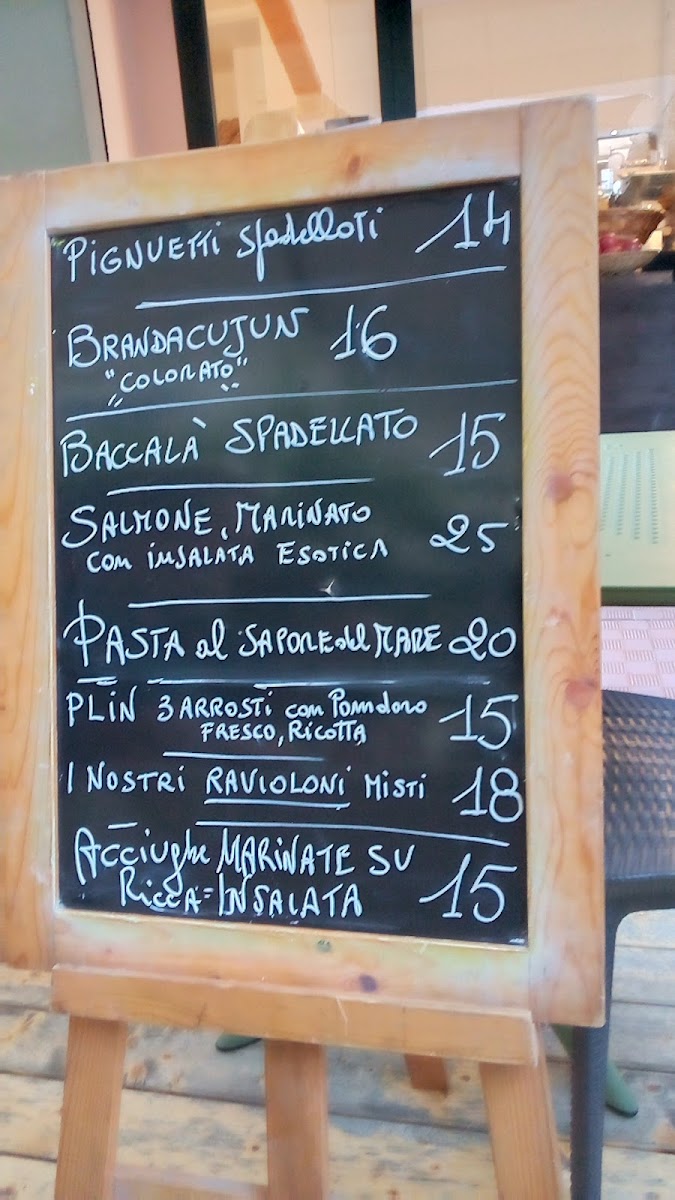 PIGNUETTI spadellati 14
BRANDACUJUN 16
"COLORATO"
BACCALÀ SPADELLATO 15
SALMONE, MARINATO
CON INSALATA ESOTICA 25
PASTA al SAPORE del MARE 20
PLIN 3 ARROSTI con Pomodoro
FRESCO, RICOTTA 15
I NOSTRI RAVIOLONI MISTI 18
Acciughe MARINATE SU
RiccA=INSALATA 15